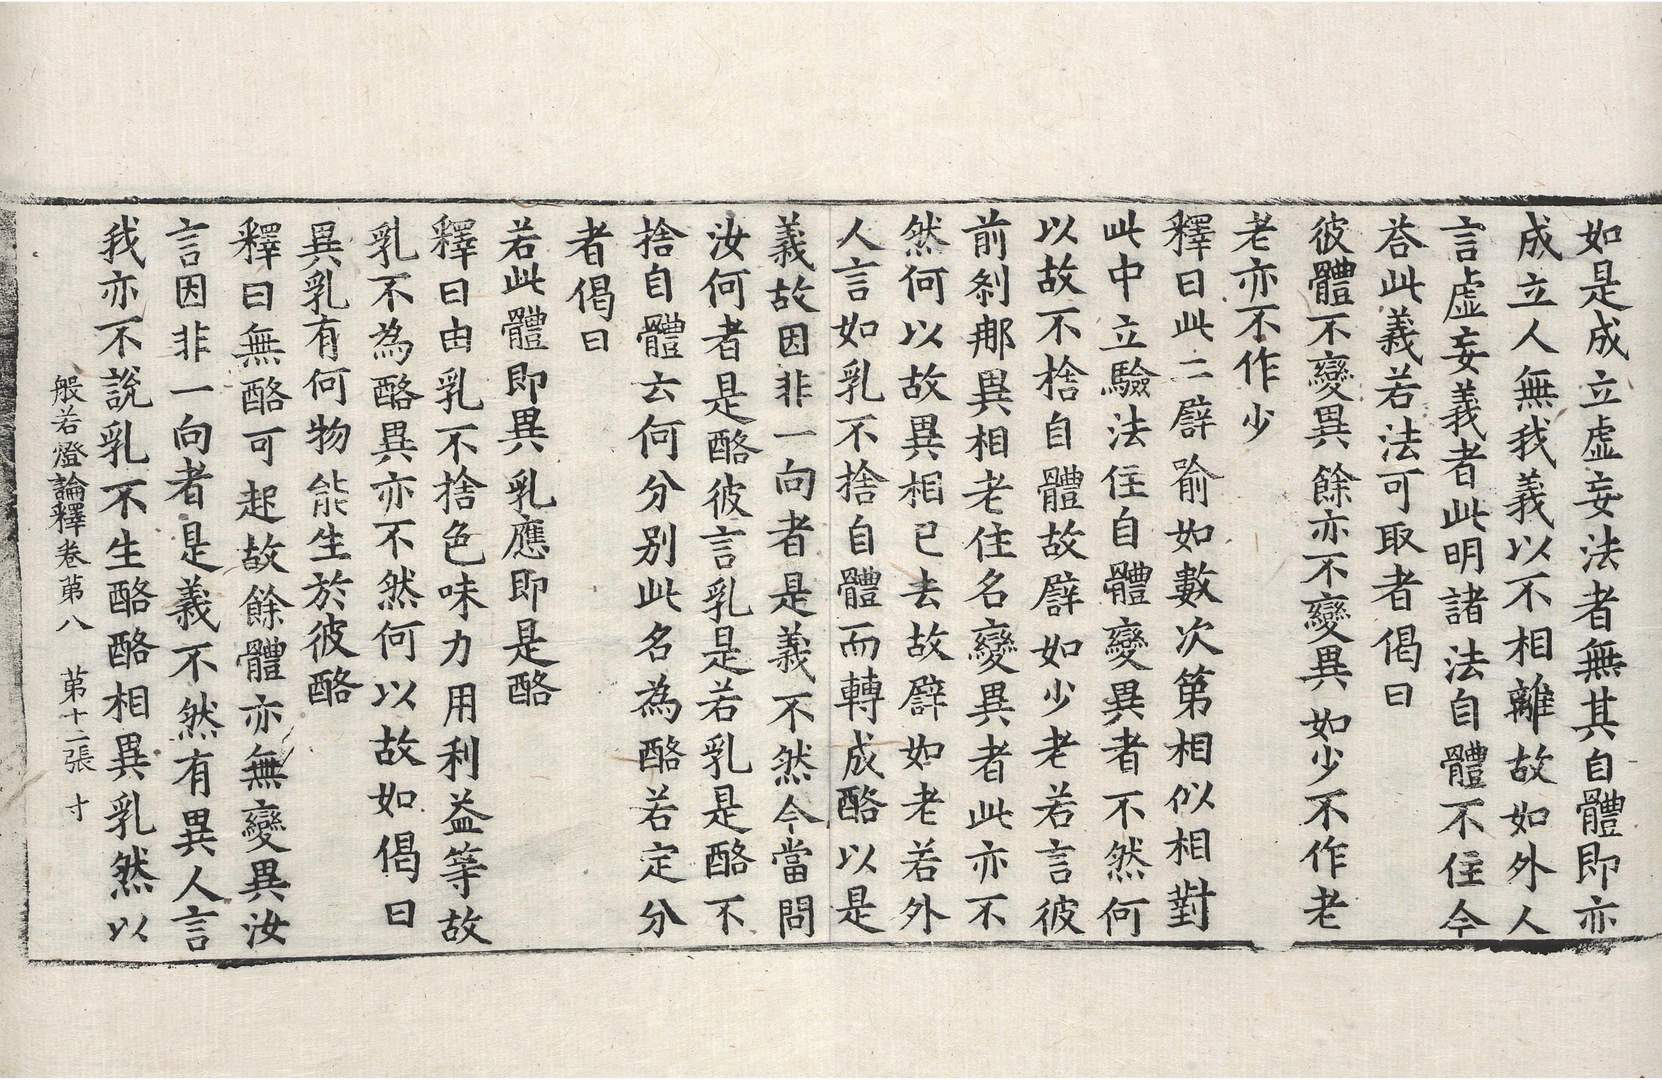 如是成立虛妄法者無其自體即亦
成立人無我義以不相離故如外人
言虛妄義者此明諸法自體不住今
荅此義若法可取者偈曰
彼體不變異餘亦不變異如少不作老
老亦不作少
釋曰此二譬喻如數次第相似相對
此中立驗法住自體變異者不然何
以故不捨自體故譬如少老若言彼
前剎那異相老住名變異者此亦不
然何以故異相已去故譬如老若外
人言如乳不捨自體而轉成酪以是
義故因非一向者是義不然今當問
汝何者是酪彼言乳是若乳是酪不
捨自體云何分別此名為酪若定分
者偈曰
若此體即異乳應即是酪
釋曰由乳不捨色味力用利益等故
乳不為酪異亦不然何以故如偈曰
異乳有何物能生於彼酪
釋曰無酪可起故餘體亦無變異汝
言因非一向者是義不然有異人言
我亦不說乳不生酪酪相異乳然以
般若燈論釋卷苐八 苐十二張 寸